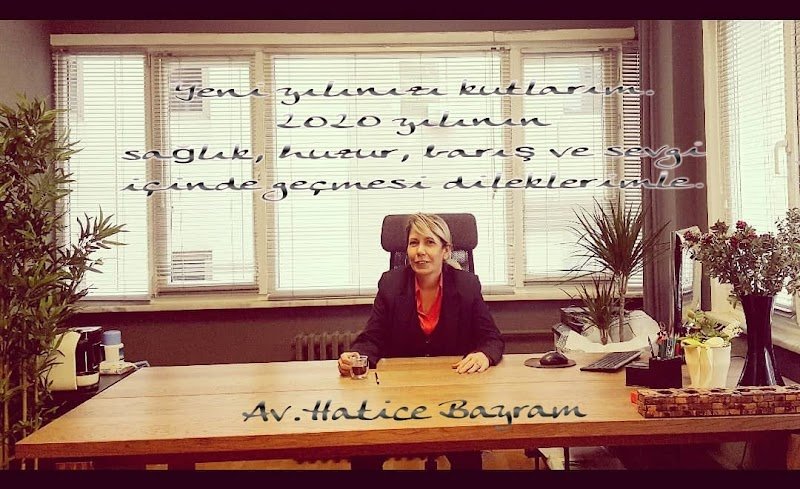 Yeni yılınızı kutlarım.
2020 yılının
sağlık, huzur, barış ve sevgi
içinde geçmesi dileklerimle.
Av. Hatice Bayram